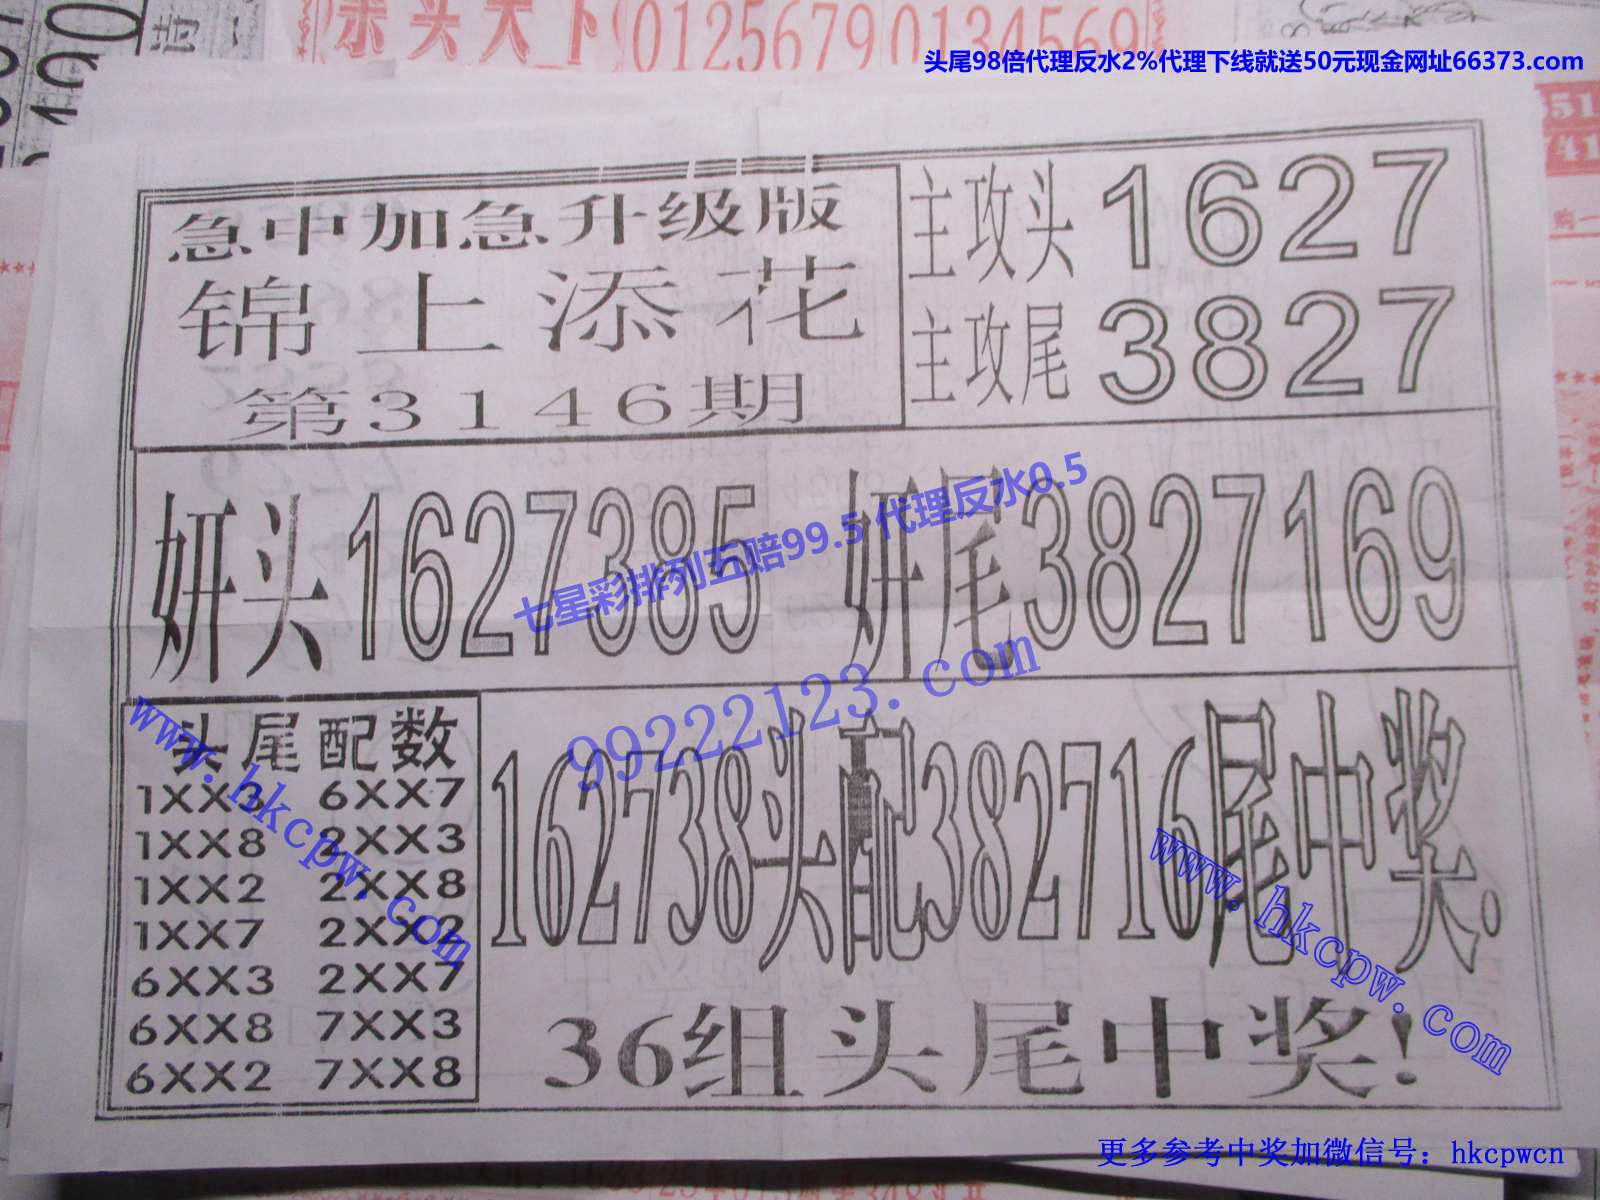 头天下 0125679 0134569
头尾98倍代理反水2%代理下线就送50元现金网址66373.com
急中加急升级版
锦上添花
第3146期
主攻头1627
主攻尾3827
妍头1627385 妍尾3827169
七星彩排列五赔99.5 代理反水0.5
99222123.com
头尾配数
1XX3 6XX7
1XX8 2XX3
1XX2 2XX8
1XX7 2XX2
6XX3 2XX7
6XX8 7XX3
6XX2 7XX8
162738头配382716尾中奖.
36组头尾中奖!
www.hkcpw.com
www.hkcpw.com
更多参考中奖加微信号：hkcpwcn